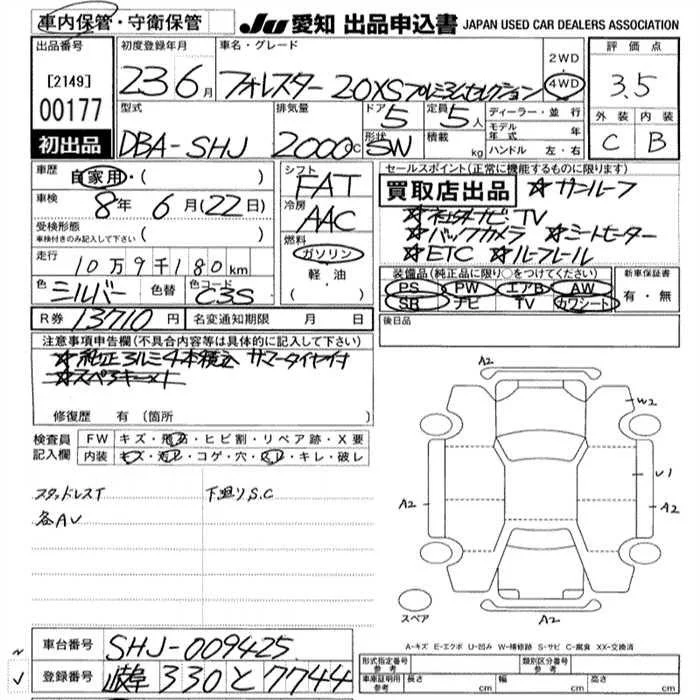 車内保管・守衛保管
JU 愛知 出品申込書 JAPAN USED CAR DEALERS ASSOCIATION
出品番号
[2149]
00177
初出品
初度登録年月
23 6月
車名・グレード
フォレスター 20XSプレミアムセレクション
2WD
4WD
評価点
3.5
外装 内装
C B
型式
DBA-SHJ
排気量
2000cc
ドア
5
定員
5人
形状
SW
積載
kg
ディーラー・並行
モデル年式 年
ハンドル 左・右
車歴
自家用・( )
車検
8年 6月(22日)
受検形態
車検付きのみ記入して下さい
( )
走行
10万9千180km
色
シルバー
色替
色コード
C3S
シフト
FAT
冷房
AAC
燃料
ガソリン
軽油
( )
セールスポイント(正常に機能するものに限ります)
買取店出品 ☆サンルーフ
☆社外ナビ・TV
☆バックカメラ ☆シートヒーター
☆ETC ☆ルーフレール
装備品(純正品に限り○をつけてください)
PS PW エアB AW
SR ナビ TV カワシート
新車保証書
有・無
R券 13710円
名変通知期限 月 日
後日品
注意事項申告欄(不具合内容等は具体的に記入して下さい)
☆純正アルミ4本積込 サマータイヤ付
☆スペアキー×1
修復歴 有(箇所
検査員記入欄
FW キズ・飛石・ヒビ割・リペア跡・X要
内装 キズ・汚レ・コゲ・穴・スレ・キレ・破レ
スタッドレスT
各AU
下廻りS.C
A2
W2
U1
A2
A2
A2
スペア
A-キズ E-エクボ U-凹み W-補修跡 S-サビ C-腐食 XX-交換済
車台番号
SHJ-009425
登録番号
岐阜 330 と 7744
形式指定番号
参考
類別区分番号
参考
車庫証明用
参考
長さ cm
幅 cm
高さ cm